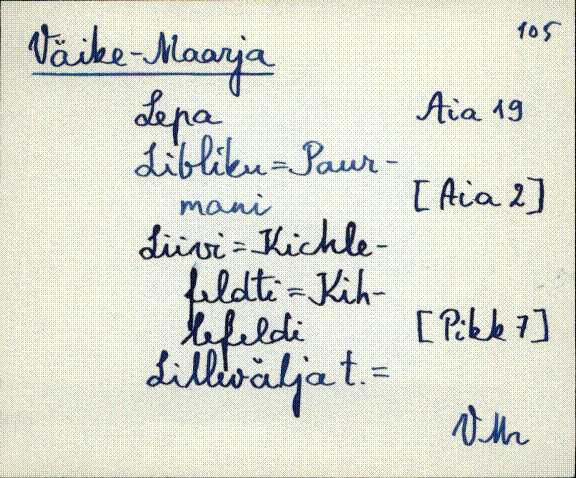 105
Väike-Maarja
Lepa Aia 19
Libliku = Paur-
mani [Aia 2]
Liivi = Kichle-
feldti = Kih-
lefeldi [Pikk 7]
Lillevälja t. =
VMr